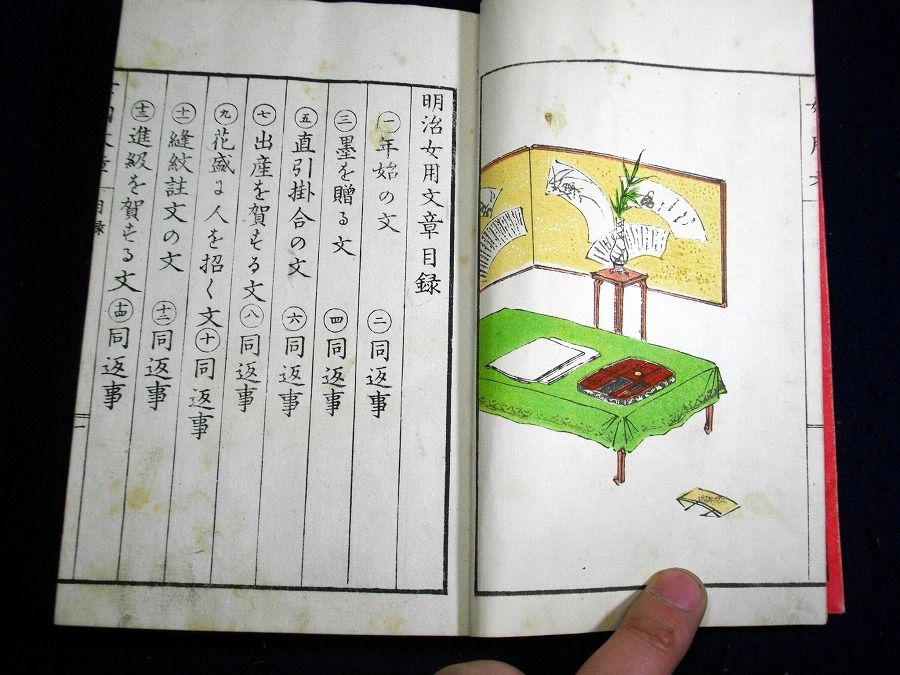 明治女用文章目録
㊀年始の文 ㊁同返事
㊂墨を贈る文 ㊃同返事
㊄直引掛合の文 ㊅同返事
㊆出産を賀する文 ㊇同返事
㊈花盛に人を招く文 ㊉同返事
⑪縫紋註文の文 ⑫同返事
⑬進級を賀する文 ⑭同返事
目録